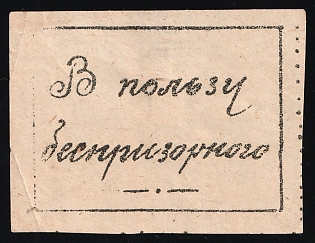 В пользу
беспризорного